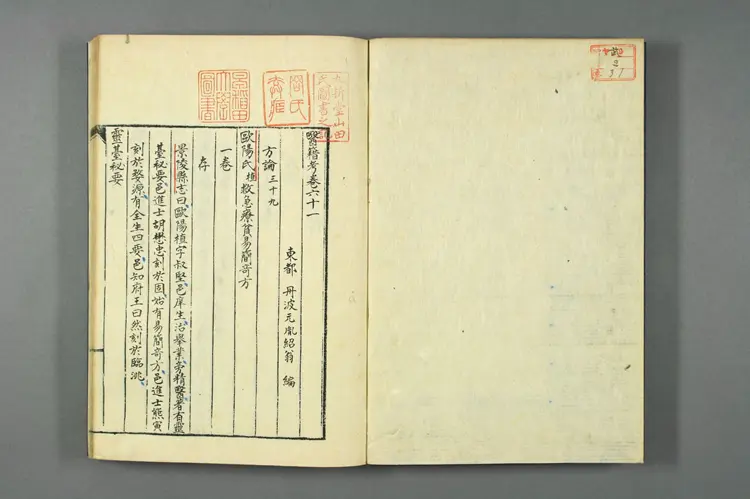 醫籍考卷六十一
東都 丹波元胤紹翁 編
方論三十九
歐陽氏植救急療貧易簡奇方
一卷
存
景陵縣志曰歐陽植字叔堅邑庠生治舉業旁精醫著有靈
臺秘要邑進士胡懋忠刻於固始有易簡奇方邑進士熊寅
刻於婺源有全生四要邑知府王曰然刻於臨洮
靈臺秘要
九折堂山田
氏圖書之記
早稲田
大學
圖書
37